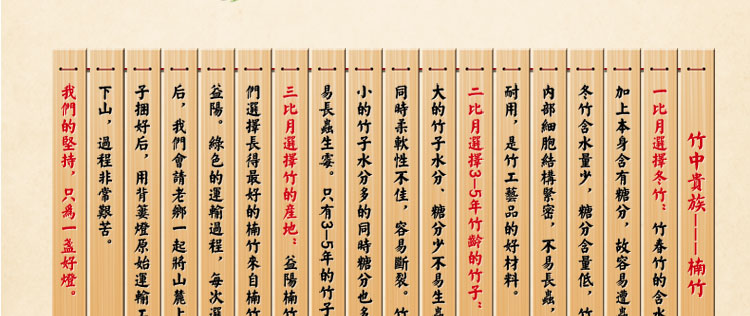 竹中貴族——楠竹
一比月選擇冬竹：竹春竹的含水
加上本身含有糖分，故容易遭蟲
冬竹含水量少，糖分含量低，竹
內部細胞結構緊密，不易長蟲，
耐用，是竹工藝品的好材料。
二比月選擇3—5年竹齡的竹子：
大的竹子水分、糖分少不易生蟲
同時柔軟性不佳，容易斷裂。竹
小的竹子水分多的同時糖分也多
易長蟲生霉。只有3—5年的竹子
三比月選擇竹的產地：益陽楠竹
們選擇長得最好的楠竹來自楠竹
益陽。綠色的運輸過程，每次選
后，我們會請老鄉一起將山麓上
子捆好后，用背簍燈原始運輸工
下山，過程非常艱苦。
我們的堅持，只為一盞好燈。